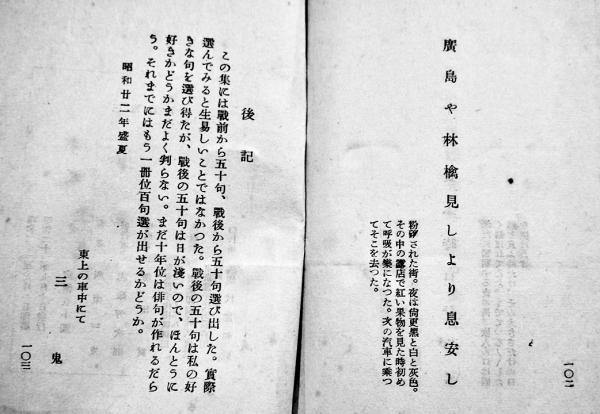 廣島や林檎見しより息安し
粉砕された街。夜は尙更黑と白と灰色。
その中の露店で紅い果物を見た時初め
て呼吸が樂になつた。次の汽車に乘つ
てそこを去つた。
一〇二
後記
この集には戰前から五十句、戰後から五十句選び出した。實際
選んでみると生易しいことではなかつた。戰後の五十句は私の好
きな句を選び得たが、戰後の五十句は日が淺いので、ほんとうに
好きかどうかまだよく判らない。まだ十年位は俳句が作れるだら
う。それまでにはもう一冊位百句選が出せるかどうか。
昭和廿二年盛夏
東上の車中にて
三鬼
一〇三